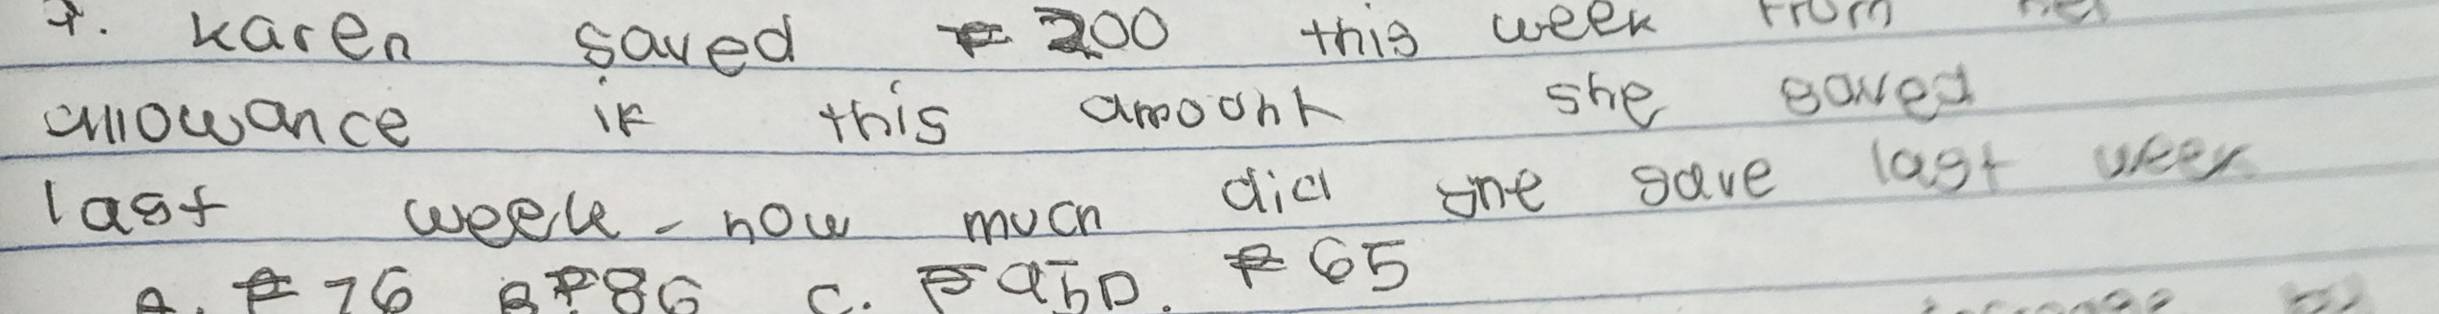 7. Karen saved ₱ 200 this week from her
allowance if this amount she saved
last week - how much did she save last week
A. ₱ 76 B ₱ 86 C. ₱ 95 D. ₱ 65